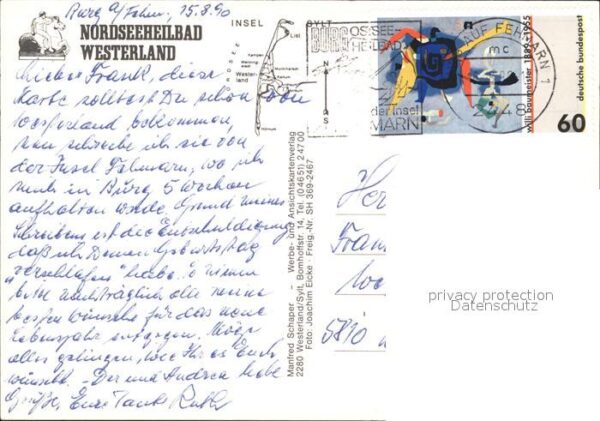 Burg a/Fehm., 15.8.90
NORDSEEHEILBAD
WESTERLAND
Lieber Frank, diese
Karte solltest Du schon von
Westerland bekommen,
nun schreibe ich sie von
der Insel Fehmarn, wo ich
mich in Burg 5 Wochen
aufhalten werde. Grund meines
Schreibens ist die Entschuldigung
daß ich Deinen Geburtstag
"verschlafen" habe.
bitte nachträglich alle meine
besten Wünsche für das neue
Lebensjahr entgegen. Möge
alles gelingen, wie Ihr es Euch
wünscht. Dir und Andrea liebe
Grüße, Eure Tante Ruth
INSEL SYLT
NORDSEE
List
Kampen
Westerland
Munkmarsch
Keitum
Hörnum
BURG OSTSEE-
HEILBAD
auf der Insel
FEHMARN
BURG AUF FEHMARN 1
mc
2448
willi baumeister 1889-1955
deutsche bundespost
60
Manfred Schaper - Werbe- und Ansichtskartenverlag
2280 Westerland/Sylt, Bomhoffstr. 14, Tel. (0 46 51) 2 47 00
Foto: Joachim Eicke · Freig.-Nr. SH 369-2467
Her
Fran
5810
privacy protection
Datenschutz